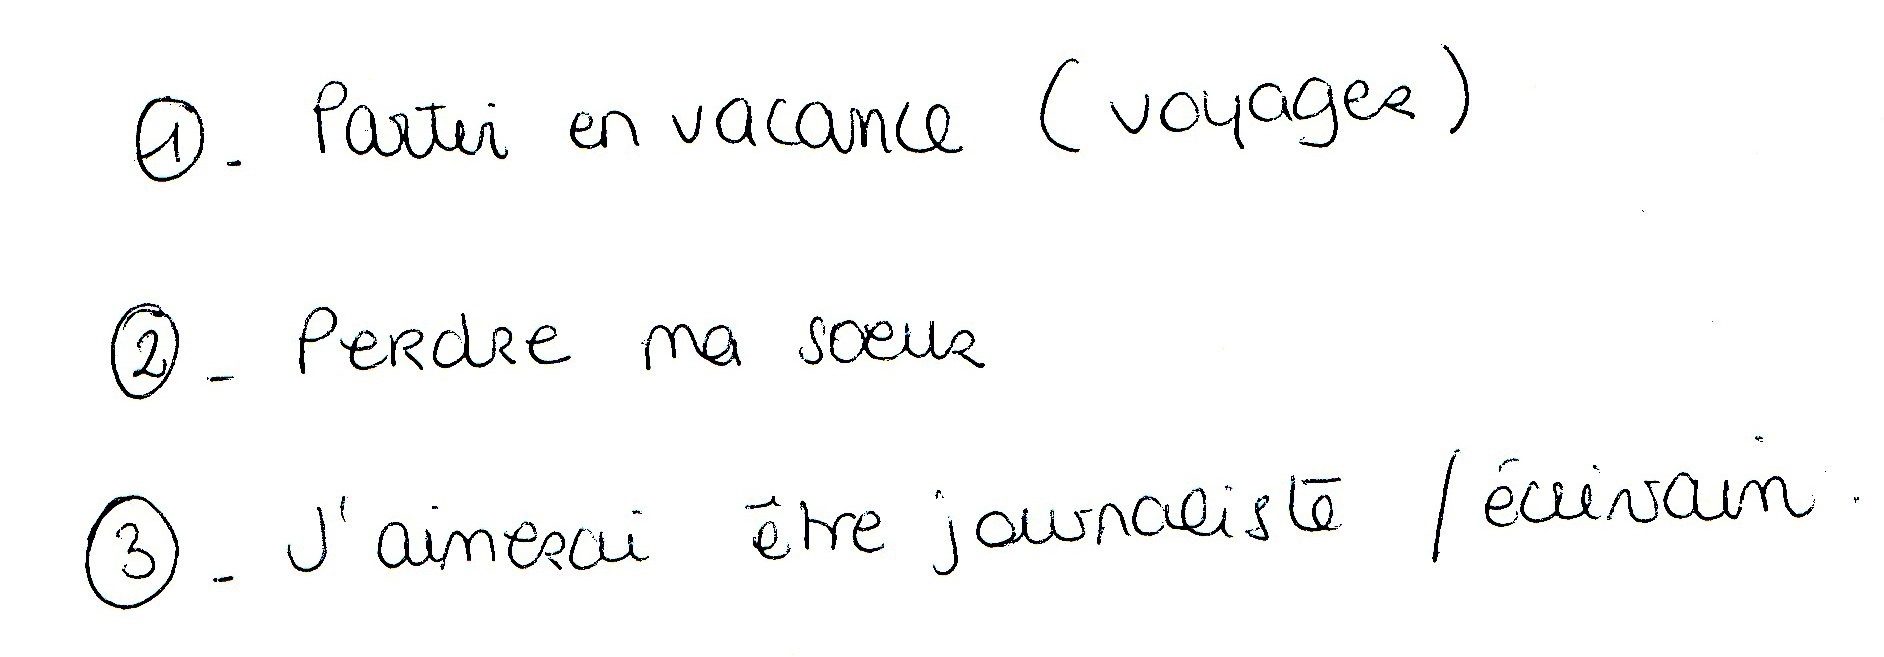 ①- Partir en vacance (voyager)
②- Perdre ma soeur
③- J'aimerai être journaliste / écrivain.